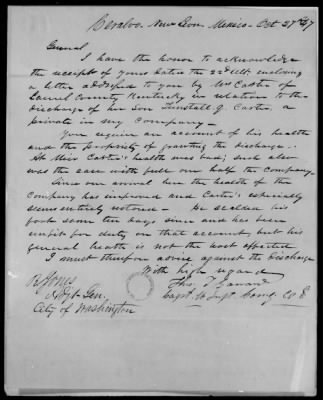 Ceralvo, New Leon, Mexico, Oct 27th 47
General
I have the honor to acknowledge
the receipt of yours dated the 22d ult. enclosing
a letter addressed to you by Mrs Carter of
Laurel County Kentucky in relation to the
discharge of her Son Tunstall J. Carter, a
private in my company.
You require an account of his health
and the propriety of granting the discharge.
At Mier Carter's health was bad; such also
was the case with full one half the company.
Since our arrival here the health of the
company has improved and Carter's especially
seems entirely restored. He scalded his
foot some ten days since and has been
unfit for duty on that account, but his
general health is not the least affected
I must therefore advise against the discharge
With high regard
Thos. J. Garrard
Capt.
R Jones
Adjt. Gen.
City of Washington